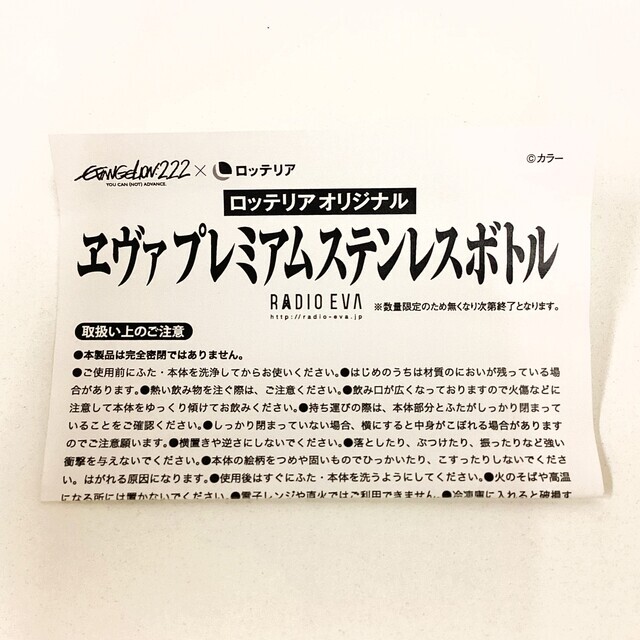 EVANGELION:2.22 × ロッテリア
YOU CAN (NOT) ADVANCE.
©カラー
ロッテリア オリジナル
ヱヴァ プレミアムステンレスボトル
RADIO EVA
http://radio-eva.jp
※数量限定のため無くなり次第終了となります。
取扱い上のご注意
●本製品は完全密閉ではありません。
●ご使用前にふた・本体を洗浄してからお使いください。●はじめのうちは材質のにおいが残っている場
合があります。●熱い飲み物を注ぐ際は、ご注意ください。●飲み口が広くなっておりますので火傷などに
注意して本体をゆっくり傾けてお飲みください。●持ち運びの際は、本体部分とふたがしっかり閉まって
いることをご確認ください。●しっかり閉まっていない場合、横にすると中身がこぼれる場合があります
のでご注意願います。●横置きや逆さにしないでください。●落としたり、ぶつけたり、振ったりなど強い
衝撃を与えないでください。●本体の絵柄をつめや固いものでひっかいたり、こすったりしないでくださ
い。はがれる原因になります。●使用後はすぐにふた・本体を洗うようにしてください。●火のそばや高温
になる所には置かないでください。●電子レンジや直火ではご利用できません。●冷凍庫に入れると破損す